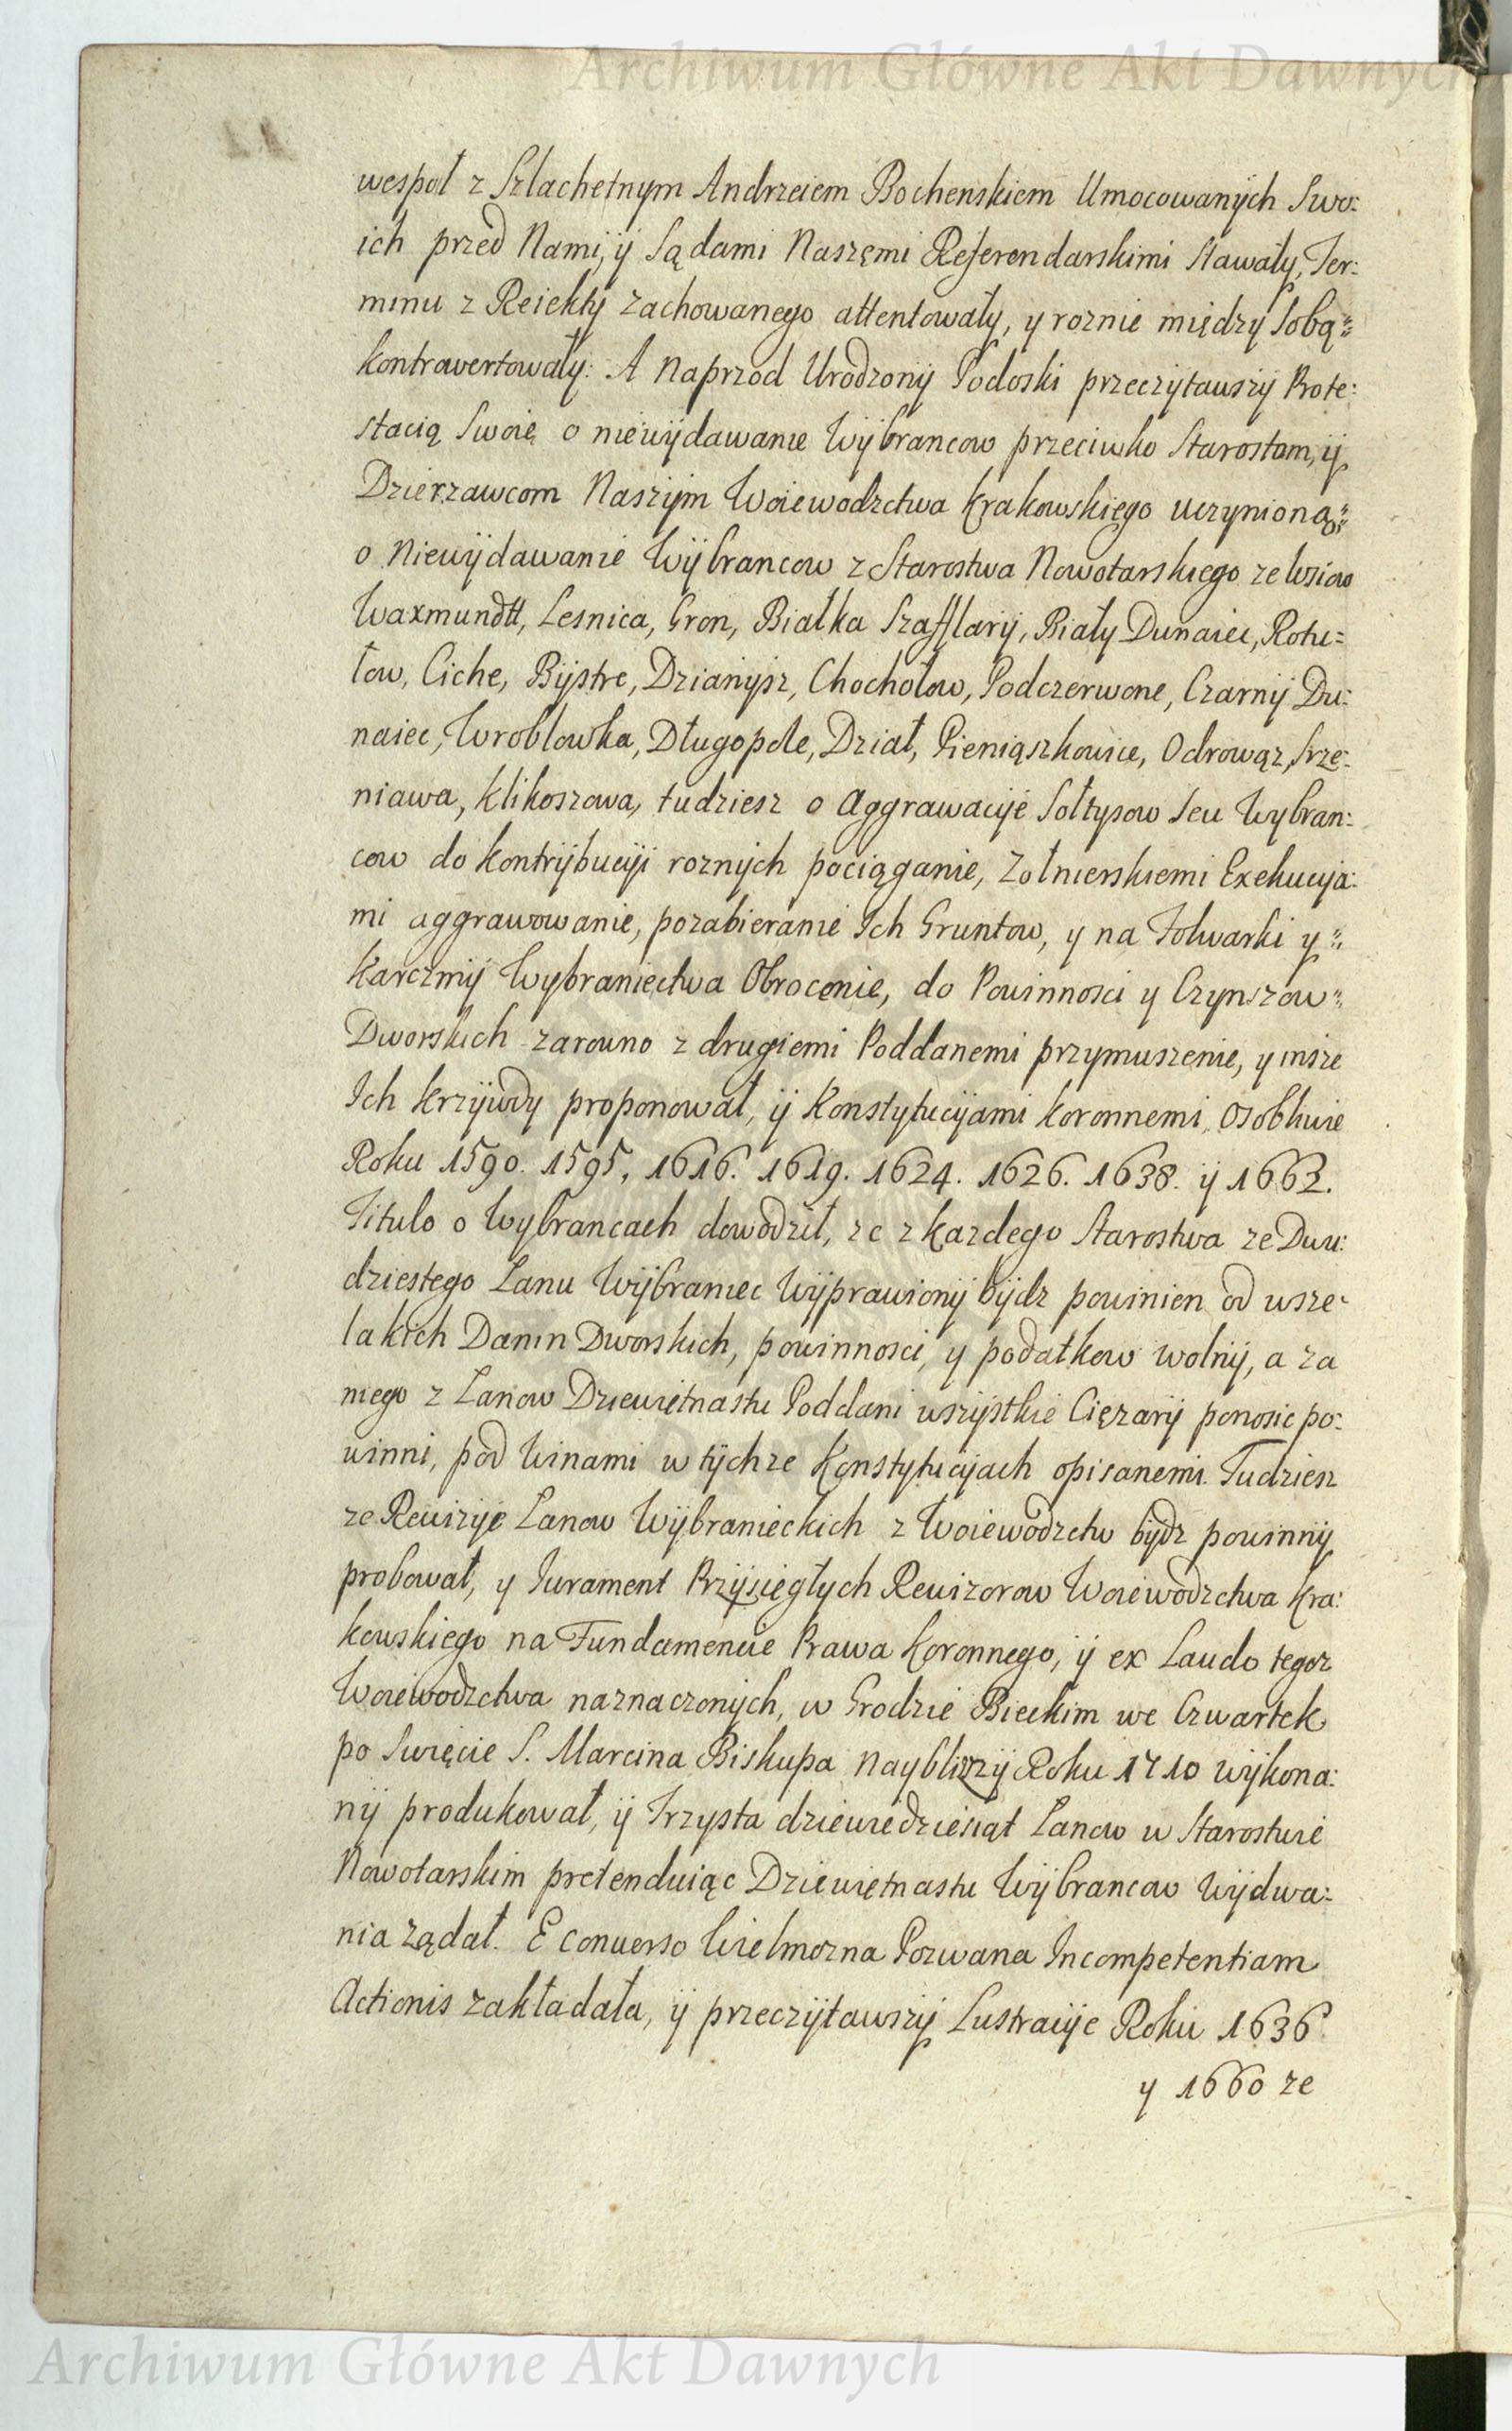 Archiwum Główne Akt Dawnych
wespoł z Szlachetnym Andrzeiem Bochenskiem Umocowanych Swo:
ich przed Nami, ÿ Sądami Naszęmi Referendarskimi stawały, Ter:
minu z Reiektÿ zachowanego attentowały, y roznie międzÿ sobą
kontrowertowałÿ: A naprzod Urodzonÿ Podoski przeczÿtawszÿ Prote:
stacią Swoię o niewÿdawanie Wÿbrancow przeciwko Starostom, ÿ
Dzierzawcom Naszÿm Woiewodztwa Krakowskiego uczynioną
o Niewÿdawanie Wÿbrancow z Starostwa Nowotarskiego ze Wsiow
Waxmundtt, Lesnica, Gron, Białka Szafflarÿ, Białÿ Dunaiec, Rotu=
łow, Ciche, Bÿstre, Dzianÿsz, Chochołow, Podczerwone, Czarnÿ Du:
naiec, Wroblowka, Długopole, Dział, Pieniąszkowice, Odrowąz, Srze:
niawa, Klikoszowa, tudziesz o Aggrawacÿe Sołtysow seu Wybran:
cow do kontrÿbucÿi roznÿch pociąganie, Zołnierskiemi Exekucÿa:
mi aggrawowanie, pozabieranie Ich Gruntow, y na Folwarki y
Karczmÿ Wybraniectwa Obrocenie, do Powinnosci y Czynszow
Dworskich zarowno z drugiemi Poddanemi przymuszenie, y insze
Ich krzÿwdy proponował, ÿ Konstytucÿami koronnemi, osobliwie
Roku 1590. 1595. 1616. 1619. 1624. 1626. 1638. ÿ 1662.
Titulo o Wybrancach dowodził, ze z kazdego Starostwa ze Dwu:
dziestego Lanu Wÿbraniec Wÿprawionÿ bÿdz powinien od wsze
lakich Danin Dworskich, powinnosci, y podatkow wolnÿ, a za
niego z Lanow Dziewiętnastu Poddani wszÿstkie Cięzarÿ ponosic po:
winni, pod Winami w tÿchze Konstytucÿach opisanemi. Tudziesz
ze Rewizÿe Lanow Wÿbranieckich z Woiewodztw bÿdz powinnÿ
probował, y Jurament Przÿsięgłych Rewizorow Woiewodztwa Kra:
kowskiego na Fundamencie Prawa Koronnego, ÿ ex Laudo tegoz
Woiewodztwa naznaczonÿch, w Grodzie Bieckim we Czwartek
po Swięcie S. Marcina Biskupa naybliszÿ Roku 1710 wÿkona:
nÿ produkował, ÿ Trzysta dziewiedziesiąt Lanow w Starostwie
Nowotarskim pretenduiąc Dziewiętnastu Wÿbrancow Wÿdwa:
nia ządał. E conuerso Wielmozna Pozwana Incompetentiam
Actionis zakładała, ÿ przeczÿtawszÿ Lustracÿe Roku 1636
y 1660 ze
Archiwum Główne Akt Dawnych